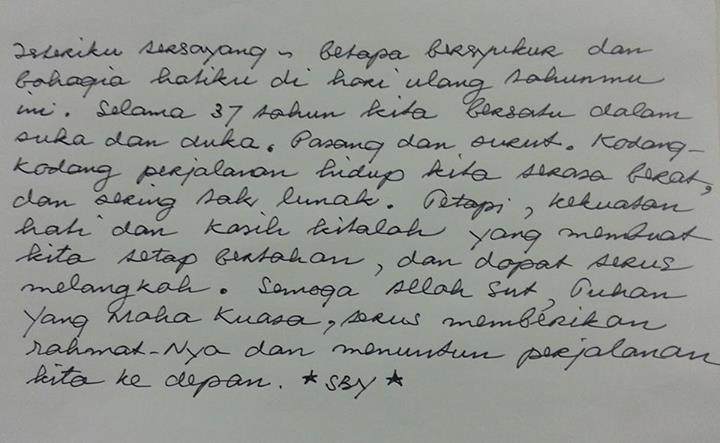 Isteriku tersayang ~ betapa bersyukur dan
bahagia hatiku di hari ulang tahunmu
ini. Selama 37 tahun kita bersatu dalam
suka dan duka. Pasang dan surut. Kadang-
kadang perjalanan hidup kita terasa berat,
dan sering tak lunak. Tetapi, kekuatan
hati dan kasih kitalah yang membuat
kita tetap bertahan, dan dapat terus
melangkah. Semoga Allah Swt, Tuhan
Yang Maha Kuasa, terus memberikan
rahmat-Nya dan menuntun perjalanan
kita ke depan. *SBY*